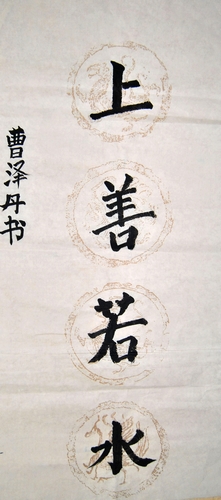 上善若水
曹泽丹书